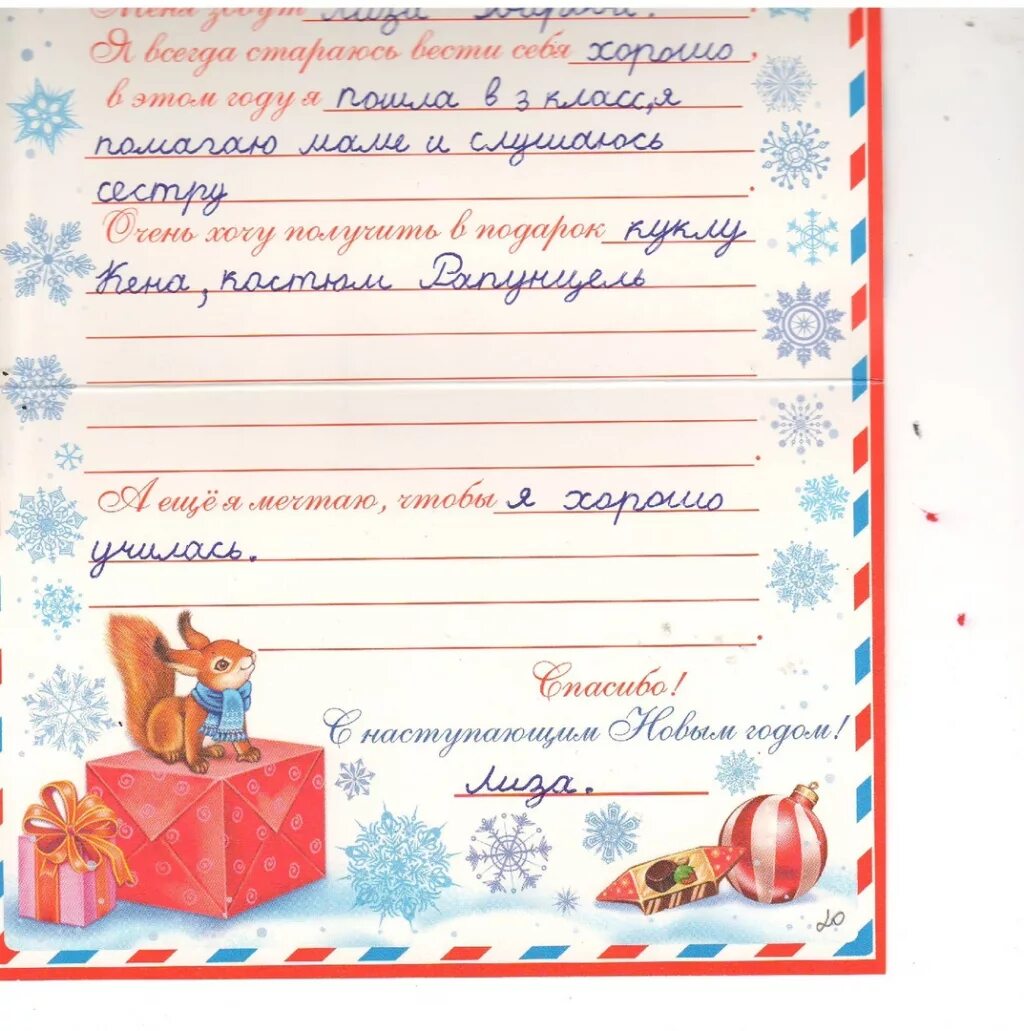 Меня зовут Лиза
Я всегда стараюсь вести себя хорошо,
в этом году я пошла в 3 класс,я
помагаю маме и слушаюсь
сестру.
Очень хочу получить в подарок куклу
Кена, костюм Рапунцель
.
А ещё я мечтаю, чтобы я хорошо
училась.
.
Спасибо!
С наступающим Новым годом!
Лиза.
20